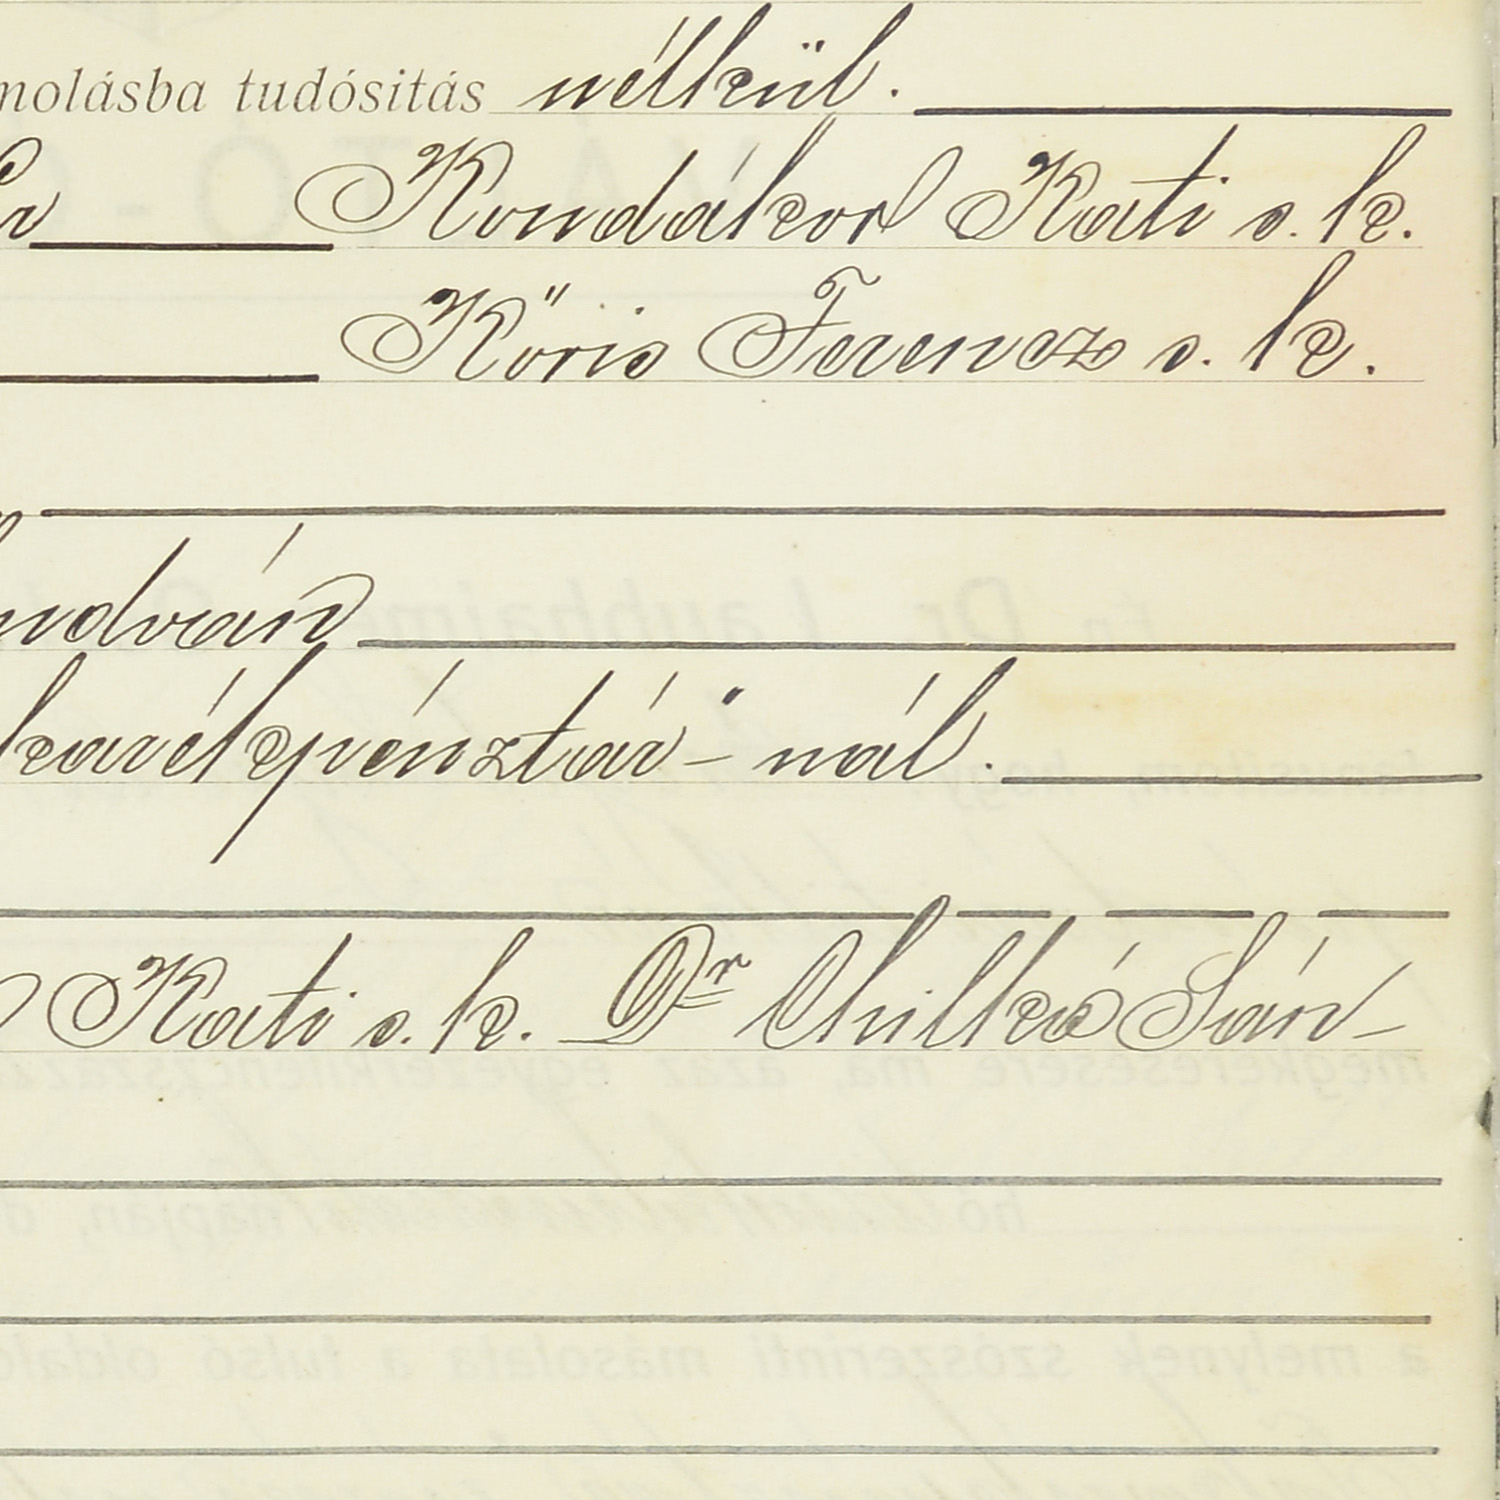 molásba tudósitás nélkül.
Kondákor Kati s. k.
Kőris Ferencz s. k.
karékpénztár"- nál.
Kati s. k. Dr Chilkó Sán-